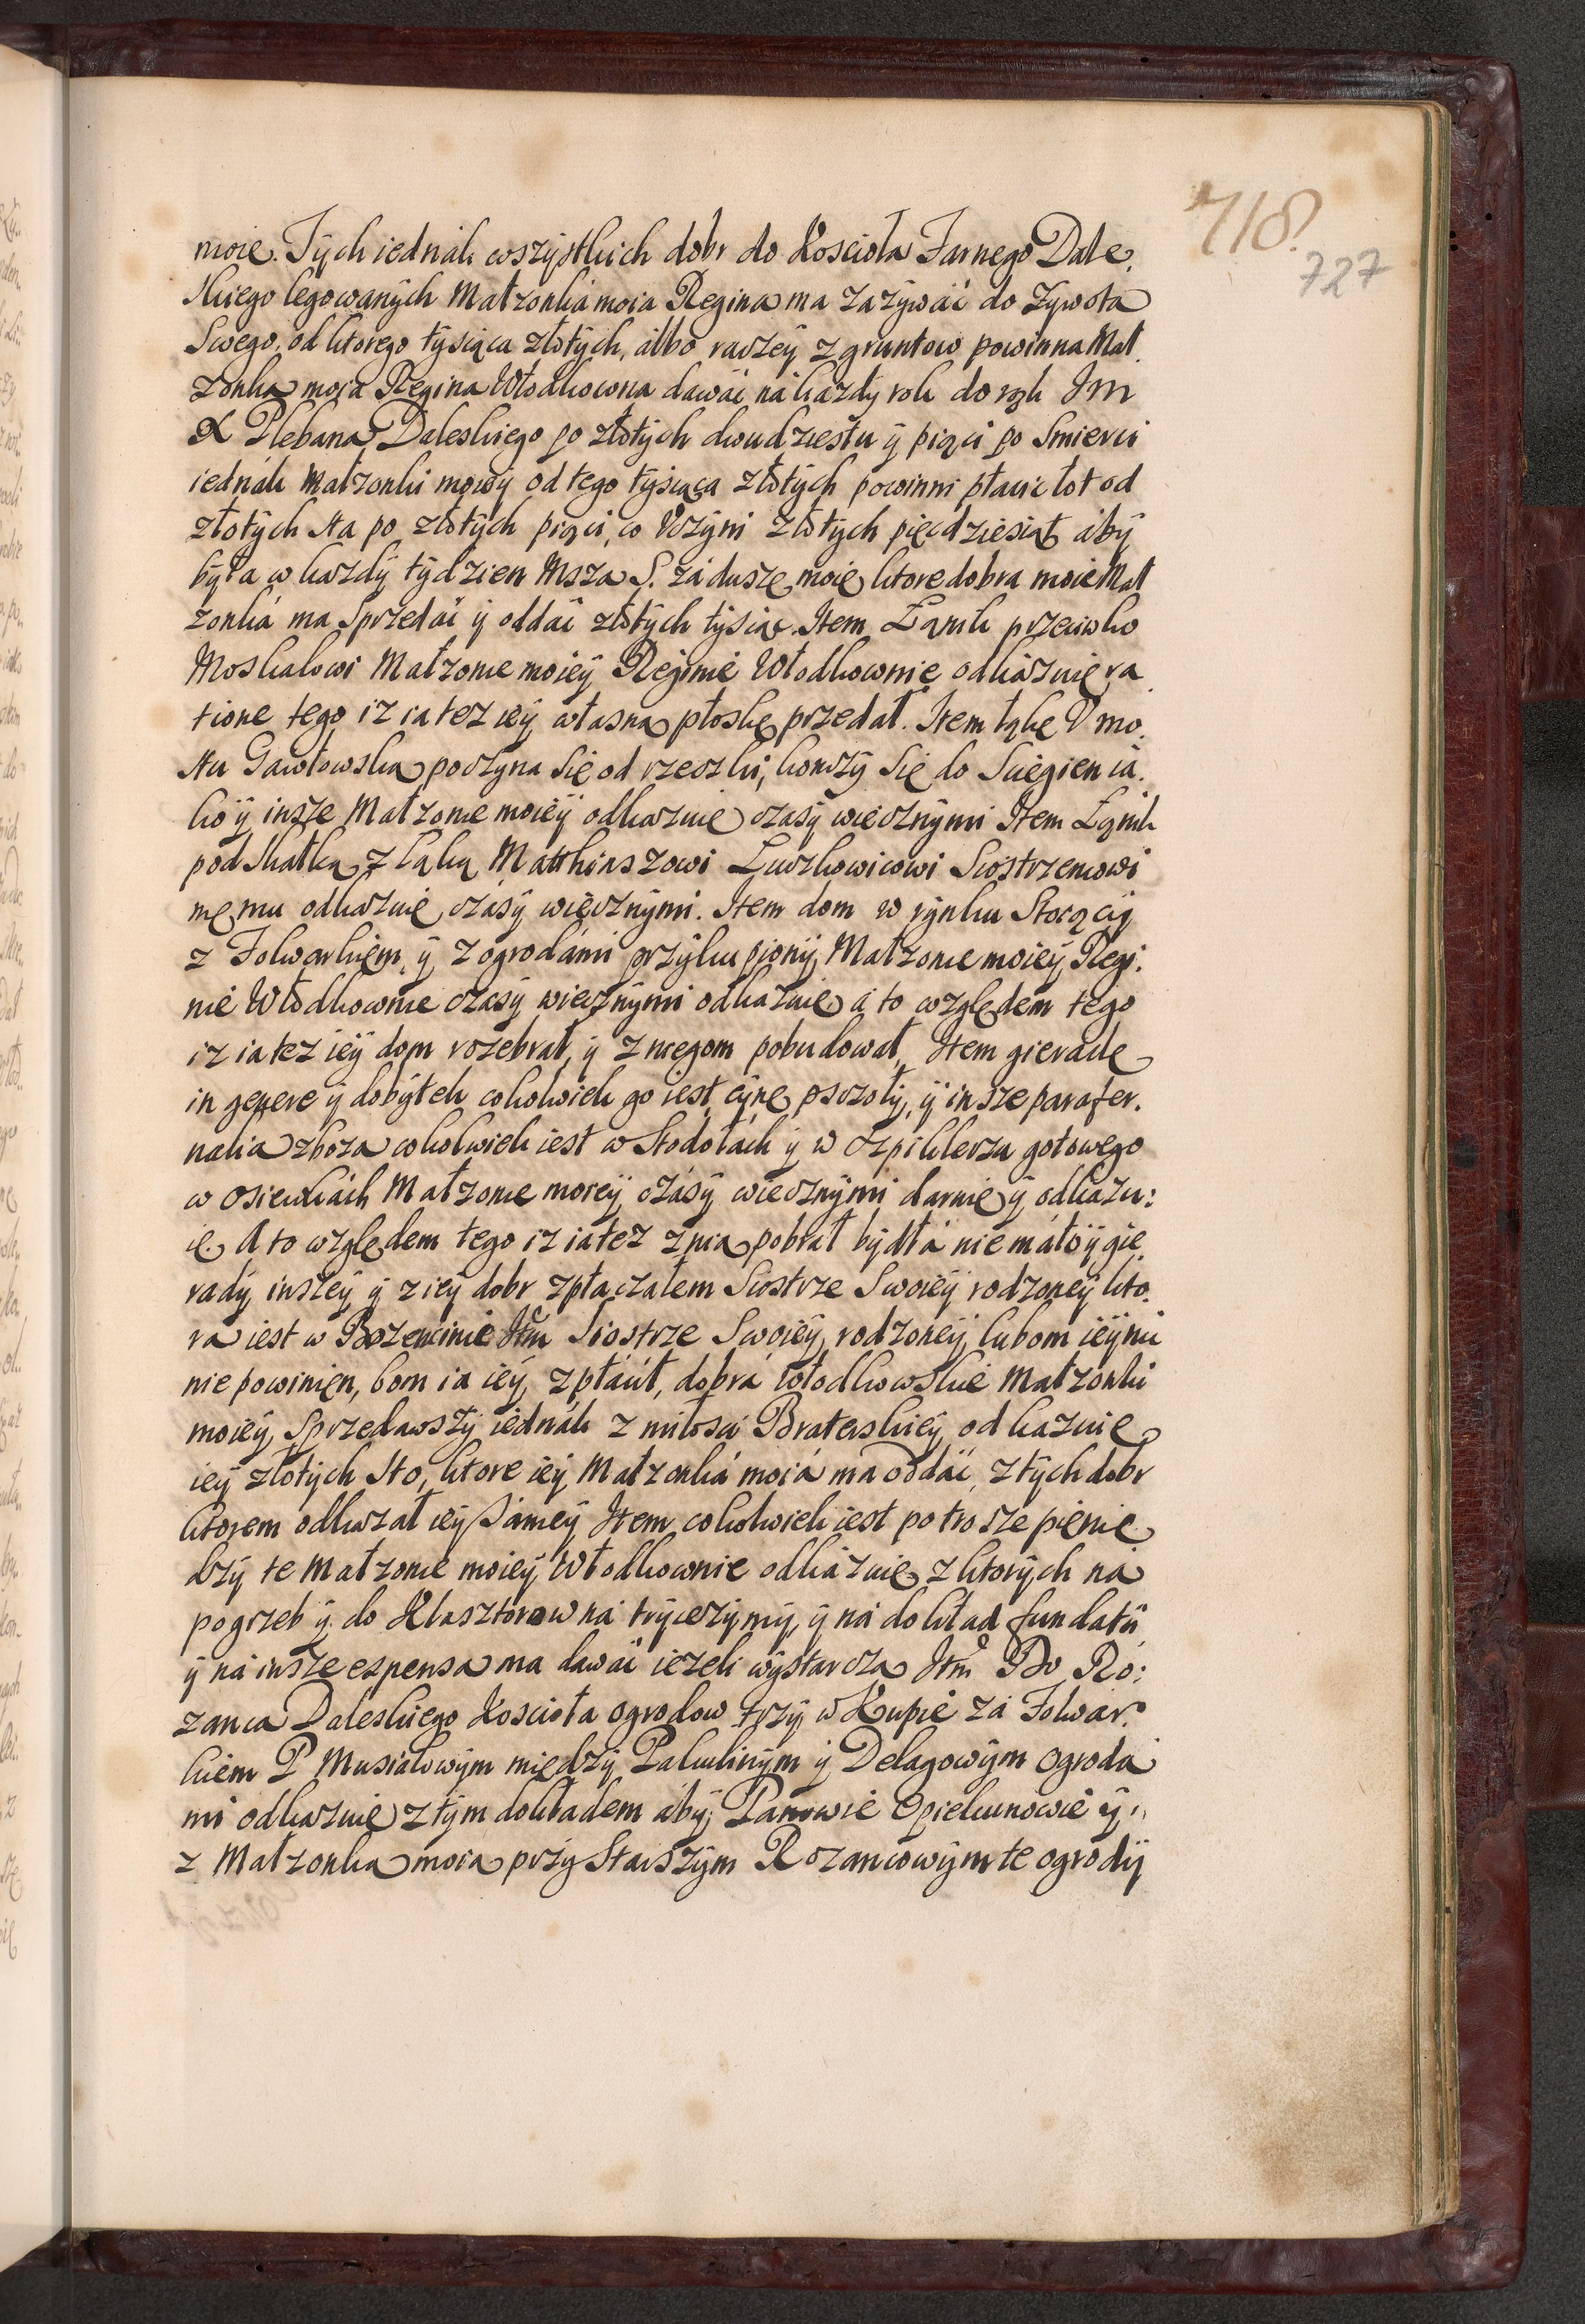 718.
727
moię. Tych iednák wszystkich dobr do Koscioła Farnego Dale,
skiego legowanych Małzonká moia Regina ma zazywáć do Zywota
Swego, od ktorego tysiąca złotych, álbo raczey z gruntow powinna Mał,
zonka moia Regina Włodkowna dawáć ná kazdy rok do rąk Jm
X Plebana Daleskiego po złotych dwudziestu y piąci po Smierci
iednák Małzonki moiey od tego tysiąca złotych powinni płacic lot od
złotych sta po złotych piąci, co Vczyni złotych pięcdziesiąt áby
była w kazdy tydzien Msza S. zá duszę moię ktore dobra moie Mał
zonká ma Sprzedáć y oddáć złotych tysiąc. Item Łanik przeciwko
Moskalowi Małzonce moiey Reginie Włodkownie odkázuię ra,
tione tego iz ia tez iey własna płoskę przedał. Item łąkę V mo,
stu Gawłowska poczyna się od rzeczki, konczy się do Sciegien ia,
ko y insze Małzonce moiey odkazuię czasy wiecznymi Item Łąnik
pod skałką z łąką Matthiaszowi Łuczkowicowi Siostrzencowi
memu odkazuię czásy wiecznymi. Item dom w rynku Stoiącÿ
z Folwarkiem y z ogrodámi przykupionÿ Małzonce moiey Regi,
nie Włodkownie czásy wiecznymi odkazuię á to względem tego
iz ia tez ieÿ dom rozebrał, y z niegom pobudował, Item gieradę
in genere y dobytek cokolwiek go iest cynę pszczoły, y insze parafer,
nalia zboza cokolwiek iest w Stodołách y w Szpiklerzu gotowego
w osiewkách Małzonce moiey czásy wiecznymi daruię y odkazu:
ię. A to względem tego iz ia tez z nia pobrał bydłá niemáło y gie,
rady inszey y z iey dobr zpłaczałem Siostrze Swoiey rodzoney kto,
ra iest w Bozencinie Itm Siostrze Swoiey rodzoney lubom iey nic
nie powinien, bom ia iey zpłácił, dobrá Włodkowskie Małzonki
moiey Sprzedawszy iednák z miłosci Braterskiey odkazuię
iey złotych sto, ktore iey Małzonká moiá ma oddáć z tych dobr
ktorem odkazał iey sámey Item cokolwiek iest po trosze pienię
dzy te Małzonce moiey Włodkownie odkázuię z ktorych ná
pogrzeb y do Klasztorow ná trycezymy, y ná dokład fundatÿ
y ná insze expensa ma dawáć iezeli wystarcza Itm Do Ro:
zanca Daleskiego Kosciota ogrodow trzy w Kupie zá Folwár,
kiem P Musiałowym między Pakulinym y Delagowym ogroda
mi odkazuię z tym dokładem áby, Panowie Opiekunowie y
z Małzonka moia przy Starszym Rozancowym te ogrody